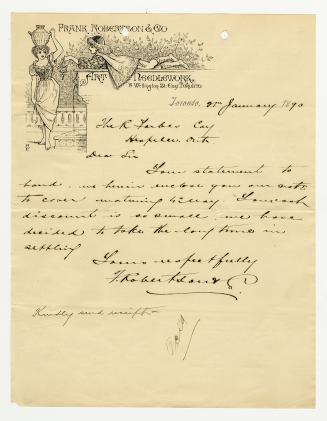 FRANK ROBERTSON & CO
ART NEEDLEWORK,
Wellington St. East Toronto.
Toronto, January 1890
The R Forbes Coy
Hespeler Ont
Dear Sir
Your statement to
hand, we herein enclose you our note
to cover maturing 4th May. Your cash
discount is so small, we have
decided to take the long time in
settling
Yours respectfully
F. Robertson &
Kindly send receipt